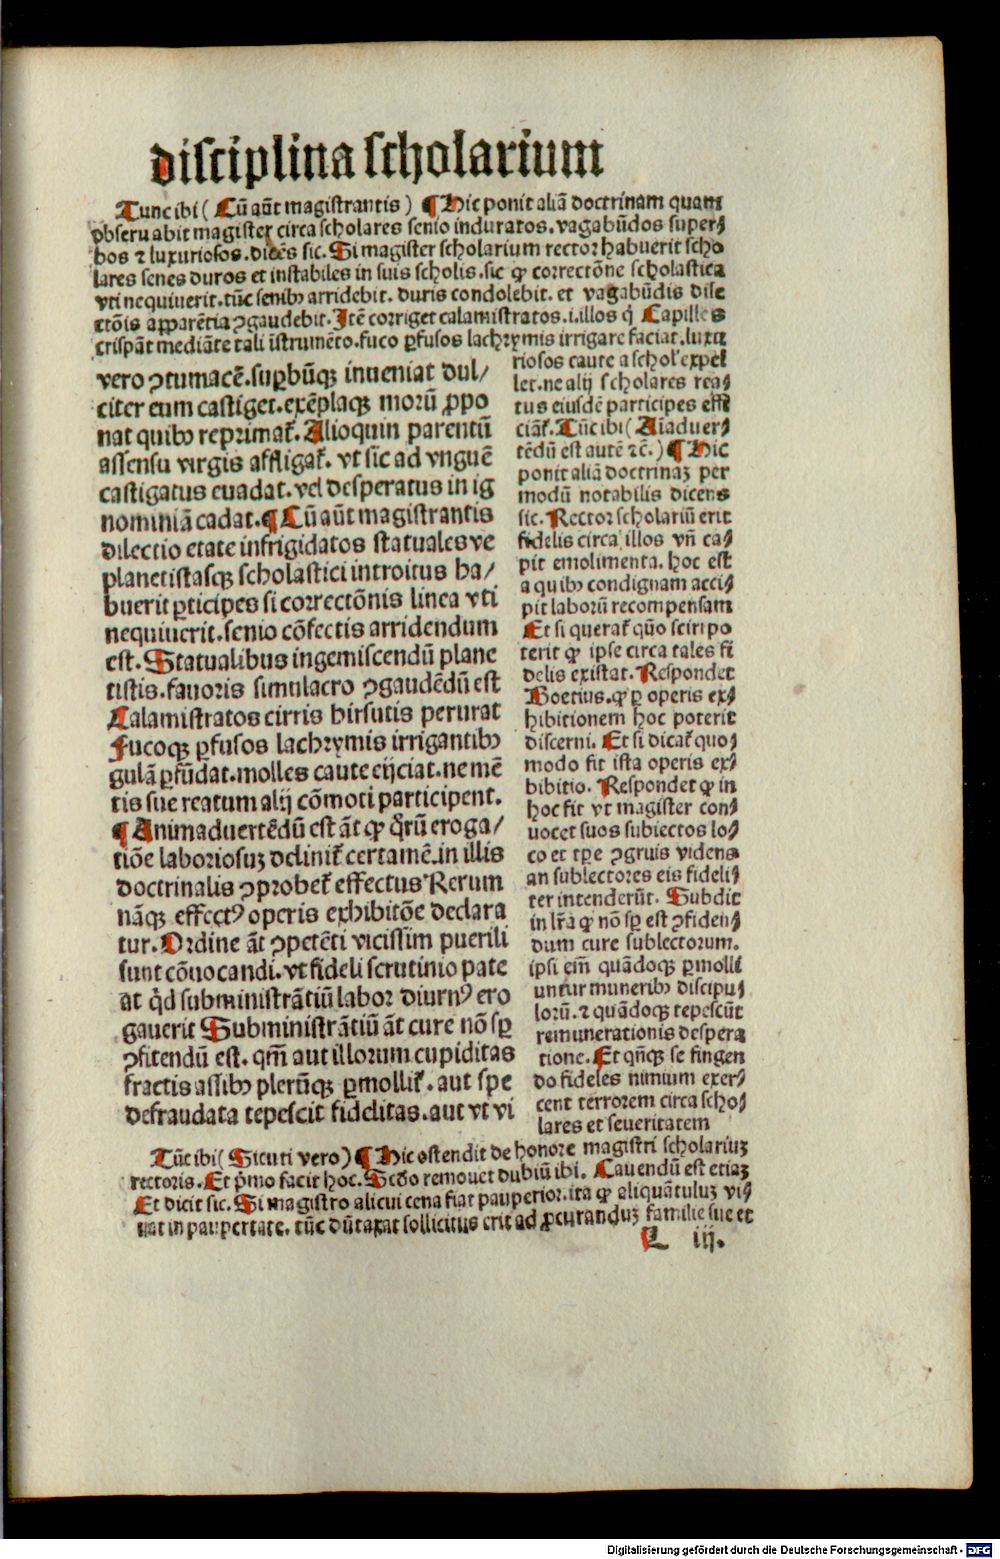 disciplina scholarium
Tunc ibi ( Cū aūt magistrantis ) ¶ Hic ponit aliā doctrinam quam
obseruabit magister circa scholares senio induratos. vagabūdos super⸗
bos ⁊ luxuriosos. dicēs sic. Si magister scholarium rector habuerit scho
lares senes duros et instabiles in suis scholis. sic ꝙ correctōne scholastica
vti nequiuerit. tūc senibꝰ arridebit. duris condolebit. et vagabūdis disc
ctōis apparētia ꝯgaudebit. Itē corriget calamistratos .i. illos q̄ Capilles
crispāt mediāte tali īstrumēto. fuco ꝑfusos lachrymis irrigare faciat. luxu
riosos caute a schol' expel
let. ne alij scholares rea⸗
tus eiusdē participes effi
ciāt̄. Tūc ibi ( Aīaduer⸗
tēdū est autē ⁊c̄. ) ¶ Hic
ponit aliā doctrinaꝫ per
modū notabilis dicens
sic. Rector scholariū erit
fidelis circa illos vñ ca⸗
pit emolimenta. hoc est
a quibꝰ condignam acci⸗
pit laborū recompensam
Et si querat̄ quō sciri po
terit ꝙ ipse circa tales fi
delis existat. Respondet
Boetius. ꝙ ꝑ operis ex⸗
hibitionem hoc poterit
discerni. Et si dicat̄ quo⸗
modo fit ista operis ex⸗
hibitio. Respondet ꝙ in
hoc fit vt magister con⸗
uocet suos subiectos lo⸗
co et tꝑe ꝯgruis videns
an sublectores eis fideli⸗
ter intenderūt. Subdit
in lr̄a ꝙ nō sꝑ est ꝯfiden⸗
dum cure sublectorum.
ipsi em̄ quādoqꝫ ꝑmolli
untur muneribꝰ discipu⸗
lorū. ⁊ quādoqꝫ tepescūt
remunerationis despera
tione. Et qn̄qꝫ se fingen
do fideles nimium exer⸗
cent terrorem circa scho⸗
lares et seueritatem
vero ꝯtumacē. suꝑbūqꝫ inueniat dul/
citer eum castiget. exēplaqꝫ morū ꝓpo
nat quibꝰ reprimat̄. Alioquin parentū
assensu virgis affligat̄. vt sic ad vnguē
castigatus euadat. vel desperatus in ig
nominiā cadat. ¶ Cū aūt magistrantis
dilectio etate infrigidatos statuales ve
planetistasqꝫ scholastici introitus ha/
buerit ꝑticipes si correctōnis linea vti
nequiuerit. senio cōfectis arridendum
est. Statualibus ingemiscendū plane
tistis. fauoris simulacro ꝯgaudēdū est
Calamistratos cirris hirsutis perurat
Fucoqꝫ ꝑfusos lachrymis irrigantibꝰ
gulā ꝑfūdat. molles caute eijciat. ne mē
tis sue reatum alij cōmoti participent.
¶ Animaduertēdū est āt ꝙ q̄rū eroga/
tiōe laboriosuꝫ dclinit̄ certamē. in illis
doctrinalis ꝯprobet̄ effectus Rerum
nāqꝫ effectꝰ operis exhibitōe declara
tur. Ordine āt ꝯpetēti vicissim puerili
sunt cōuocandi. vt fideli scrutinio pate
at qd̄ subministrātiū labor diurnꝰ ero
gauerit Subministrātiū āt cure nō sꝑ
ꝯfitendū est. qm̄ aut illorum cupiditas
fractis assibꝰ plerūqꝫ ꝑmollit̄. aut spe
defraudata tepescit fidelitas. aut vt vi
Tūc ibi ( Sicuti vero ) ¶ Hic ostendit de honore magistri scholariuꝫ
rectoris. Et p̄mo facit hoc. Scd̄o remouet dubiū ibi. Cauendū est etiaꝫ
Et dicit sic. Si magistro alicui cena fiat pauperior. ita ꝙ aliquātuluꝫ vi⸗
uat in paupertate. tūc dūtaxat sollicitus erit ad ꝓcuranduꝫ familie sue et
L iij.
Digitalisierung gefördert durch die Deutsche Forschungsgemeinschaft - DFG